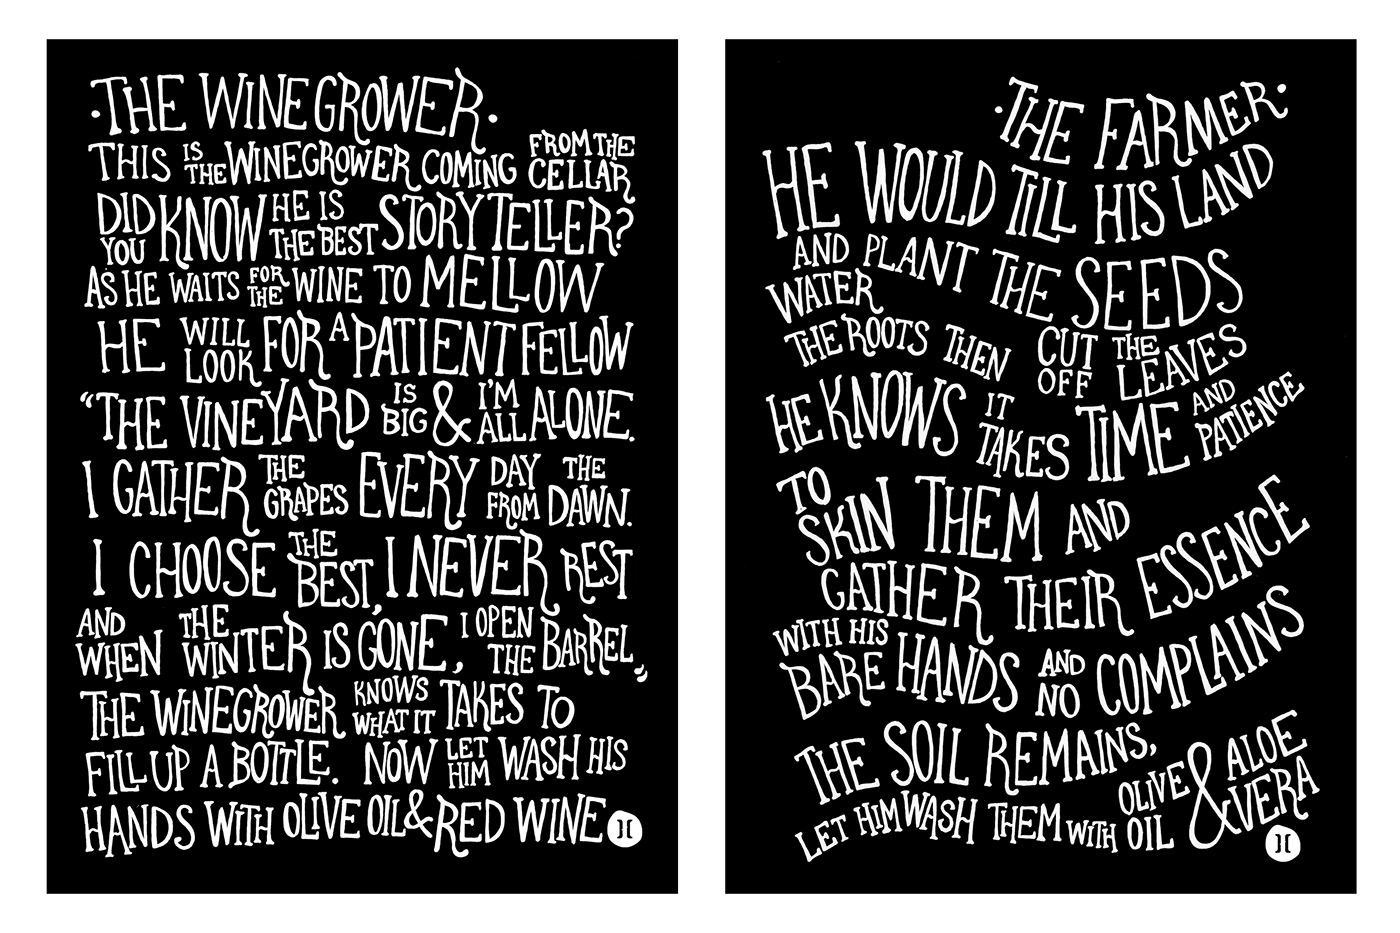 ·THE WINEGROWER·
THIS IS THE WINEGROWER COMING FROM THE CELLAR
DID YOU KNOW HE IS THE BEST STORYTELLER?
AS HE WAITS FOR THE WINE TO MELLOW
HE WILL LOOK FOR A PATIENT FELLOW
“THE VINEYARD IS BIG & I'M ALL ALONE.
I GATHER THE GRAPES EVERY DAY FROM THE DAWN.
I CHOOSE THE BEST, I NEVER REST
AND WHEN THE WINTER IS GONE, I OPEN THE BARREL,”
THE WINEGROWER KNOWS WHAT IT TAKES TO
FILL UP A BOTTLE. NOW LET HIM WASH HIS
HANDS WITH OLIVE OIL & RED WINE
·THE FARMER·
HE WOULD TILL HIS LAND
AND PLANT THE SEEDS
WATER
THE ROOTS THEN CUT OFF THE LEAVES
HE KNOWS IT TAKES TIME AND PATIENCE
TO SKIN THEM AND
GATHER THEIR ESSENCE
WITH HIS BARE HANDS AND NO COMPLAINS
THE SOIL REMAINS,
LET HIM WASH THEM WITH OLIVE OIL & ALOE VERA